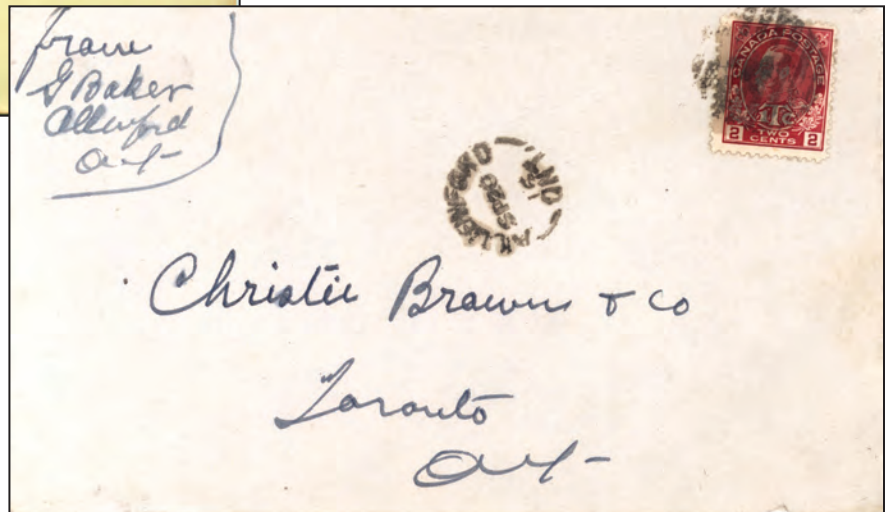 from
G Baker
Allenford
Ont
CANADA POSTAGE
1Tc
2 TWO CENTS 2
ALLENFORD
ONT
SP 20
Christie Brown & Co
Toronto
Ont